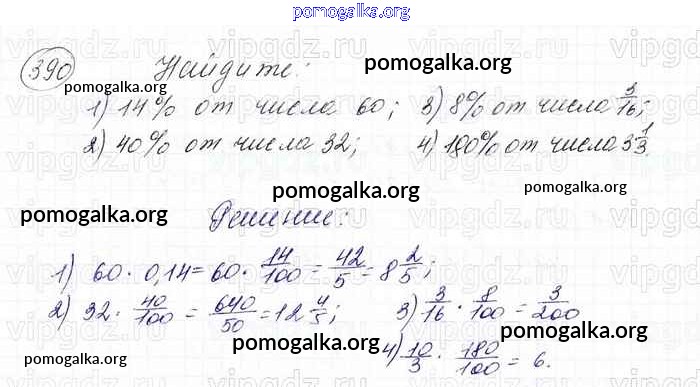 pomogalka.org
390 Найдите: pomogalka.org
pomogalka.org
1) 14% от числа 60; 3) 8% от числа 3/16;
2) 40% от числа 32; 4) 180% от числа 3 1/3.
pomogalka.org pomogalka.org
pomogalka.org Решение: pomogalka.org
1) 60 · 0,14 = 60 · 14/100 = 42/5 = 8 2/5;
2) 32 · 40/100 = 640/50 = 12 4/5; 3) 3/16 · 8/100 = 3/200
pomogalka.org
4) 10/3 · 180/100 = 6.
pomogalka.org pomogalka.org
vipgdz.ru vipgdz.ru vipgdz.ru